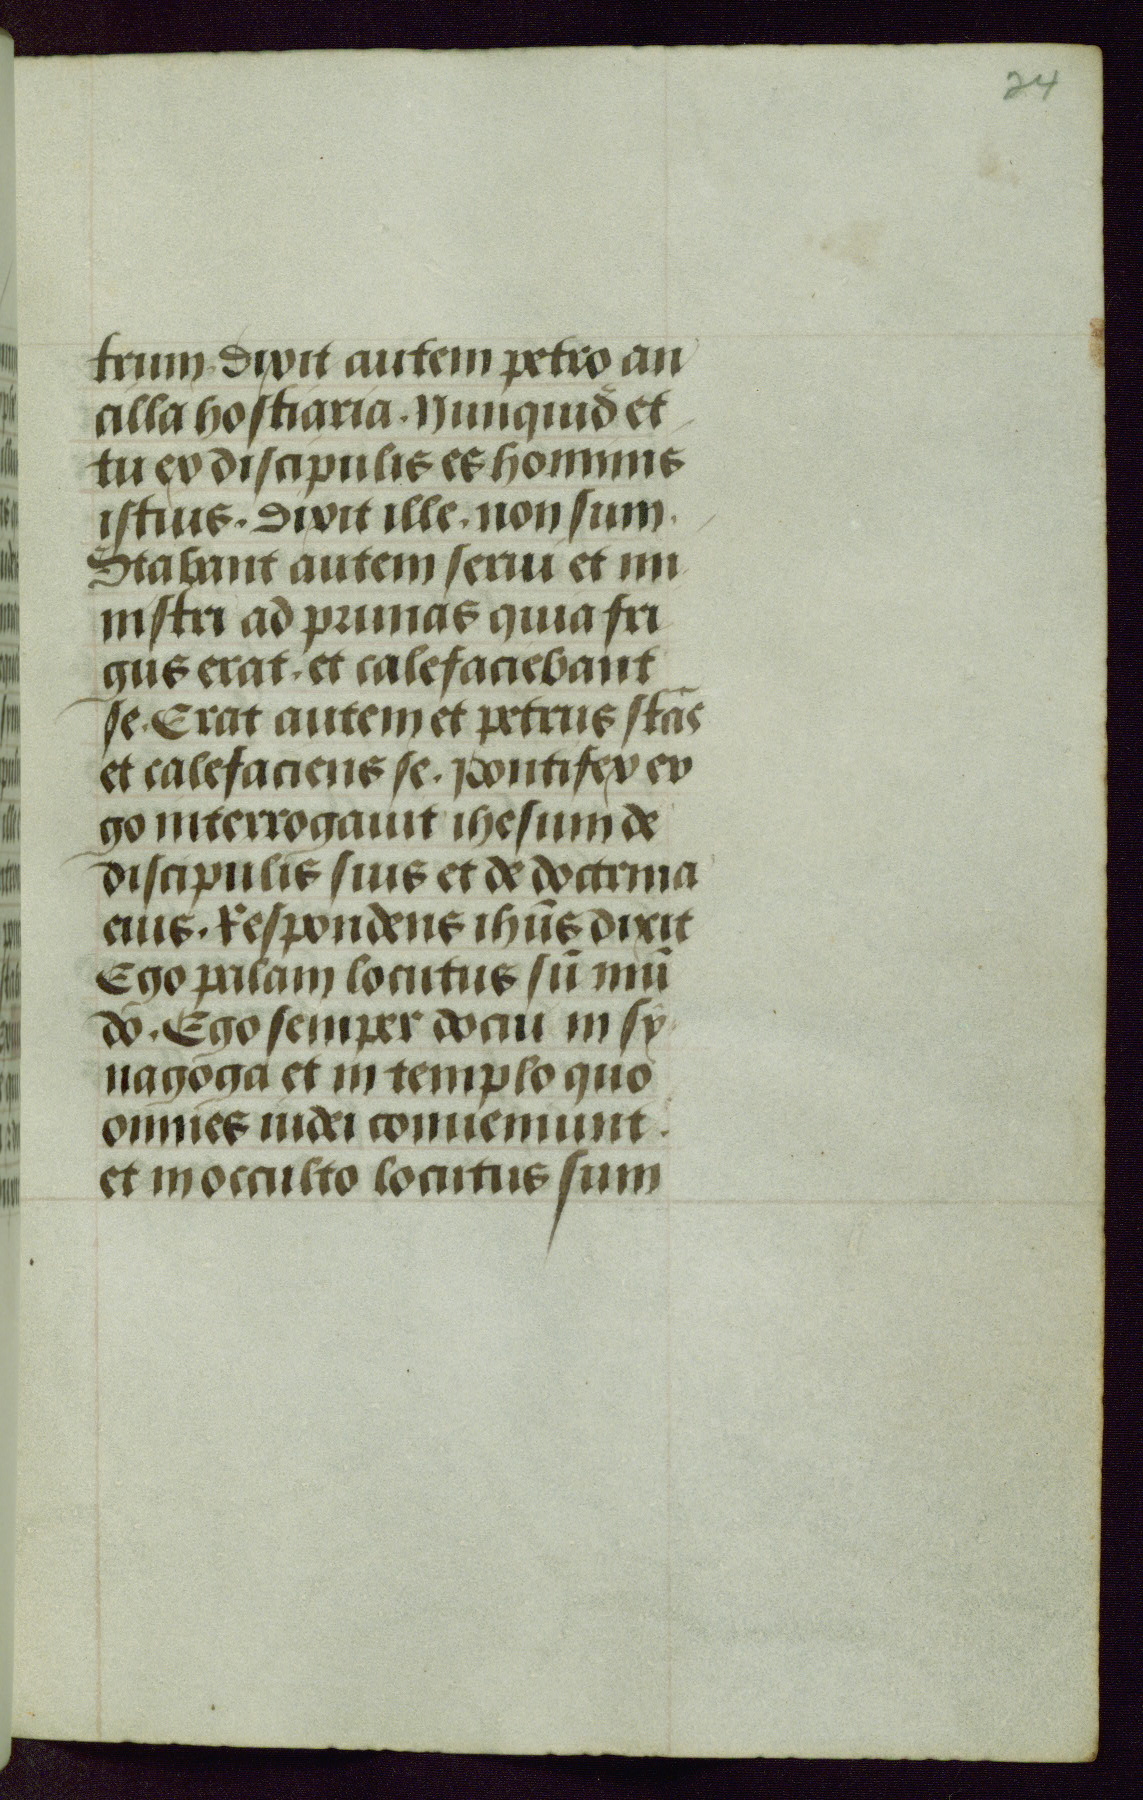 24
trum. Dixit autem petro an
cilla hostiaria. Nunquid et
tu ex discipulis es hominis
istius. Dixit ille. non sum.
Stabant autem serui et mi
nistri ad prunas quia fri
gus erat. et calefaciebant
se. Erat autem et petrus stās
et calefaciens se. Pontifex er
go interrogauit ihesum de
discipulis suis et de doctrina
eius. Respondens ihūs dixit
Ego palam locutus sū mū
do. Ego semper docui in sy
nagoga et in templo quo
omnes iudei conueniunt.
et in occulto locutus sum